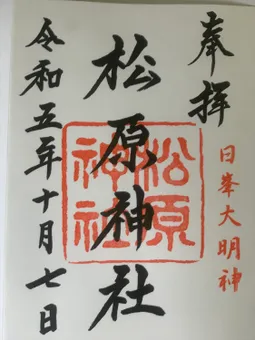 奉拝
日峯大明神
松原神社
松原神社
令和五年十月七日